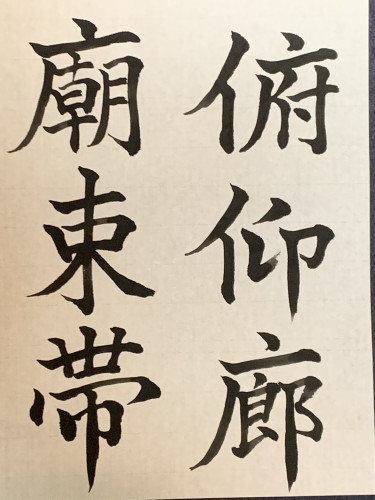 俯仰廊
廟束帯